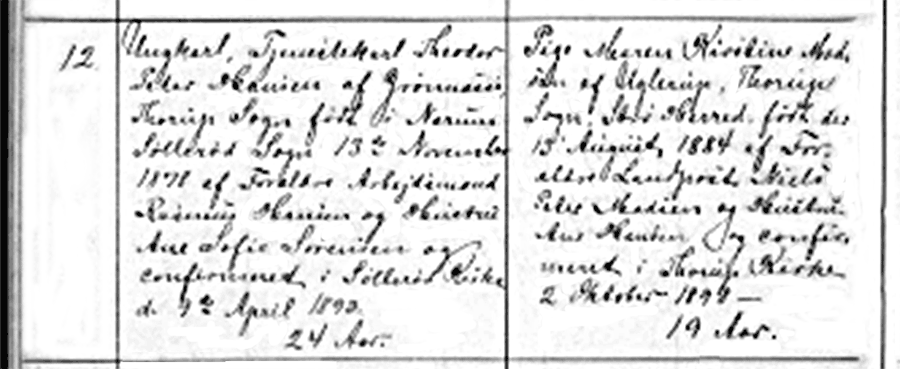 12.
Ungkarl, Tjenestekarl Theodor
Peter Hansen af Grønnæsse,
Thorup Sogn født i Nærum
Søllerød Sogn 13de November
1878 af Forældre Arbejdsmand
Rasmus Hansen og Hustru
Ane Sofie Sørensen og
confirmeret i Søllerød Kirke
d. 9de April 1893.
24 Aar.
Pige Maren Kirstine Mad-
sen af Uglerup, Thorup
Sogn, Strø Herred født den
15 August, 1884 af For-
ældre Niels
Peter Madsen og Hustru
Ane Hansen og confir-
meret i Thorup Kirke
2 Oktober 1898 —
19 Aar.